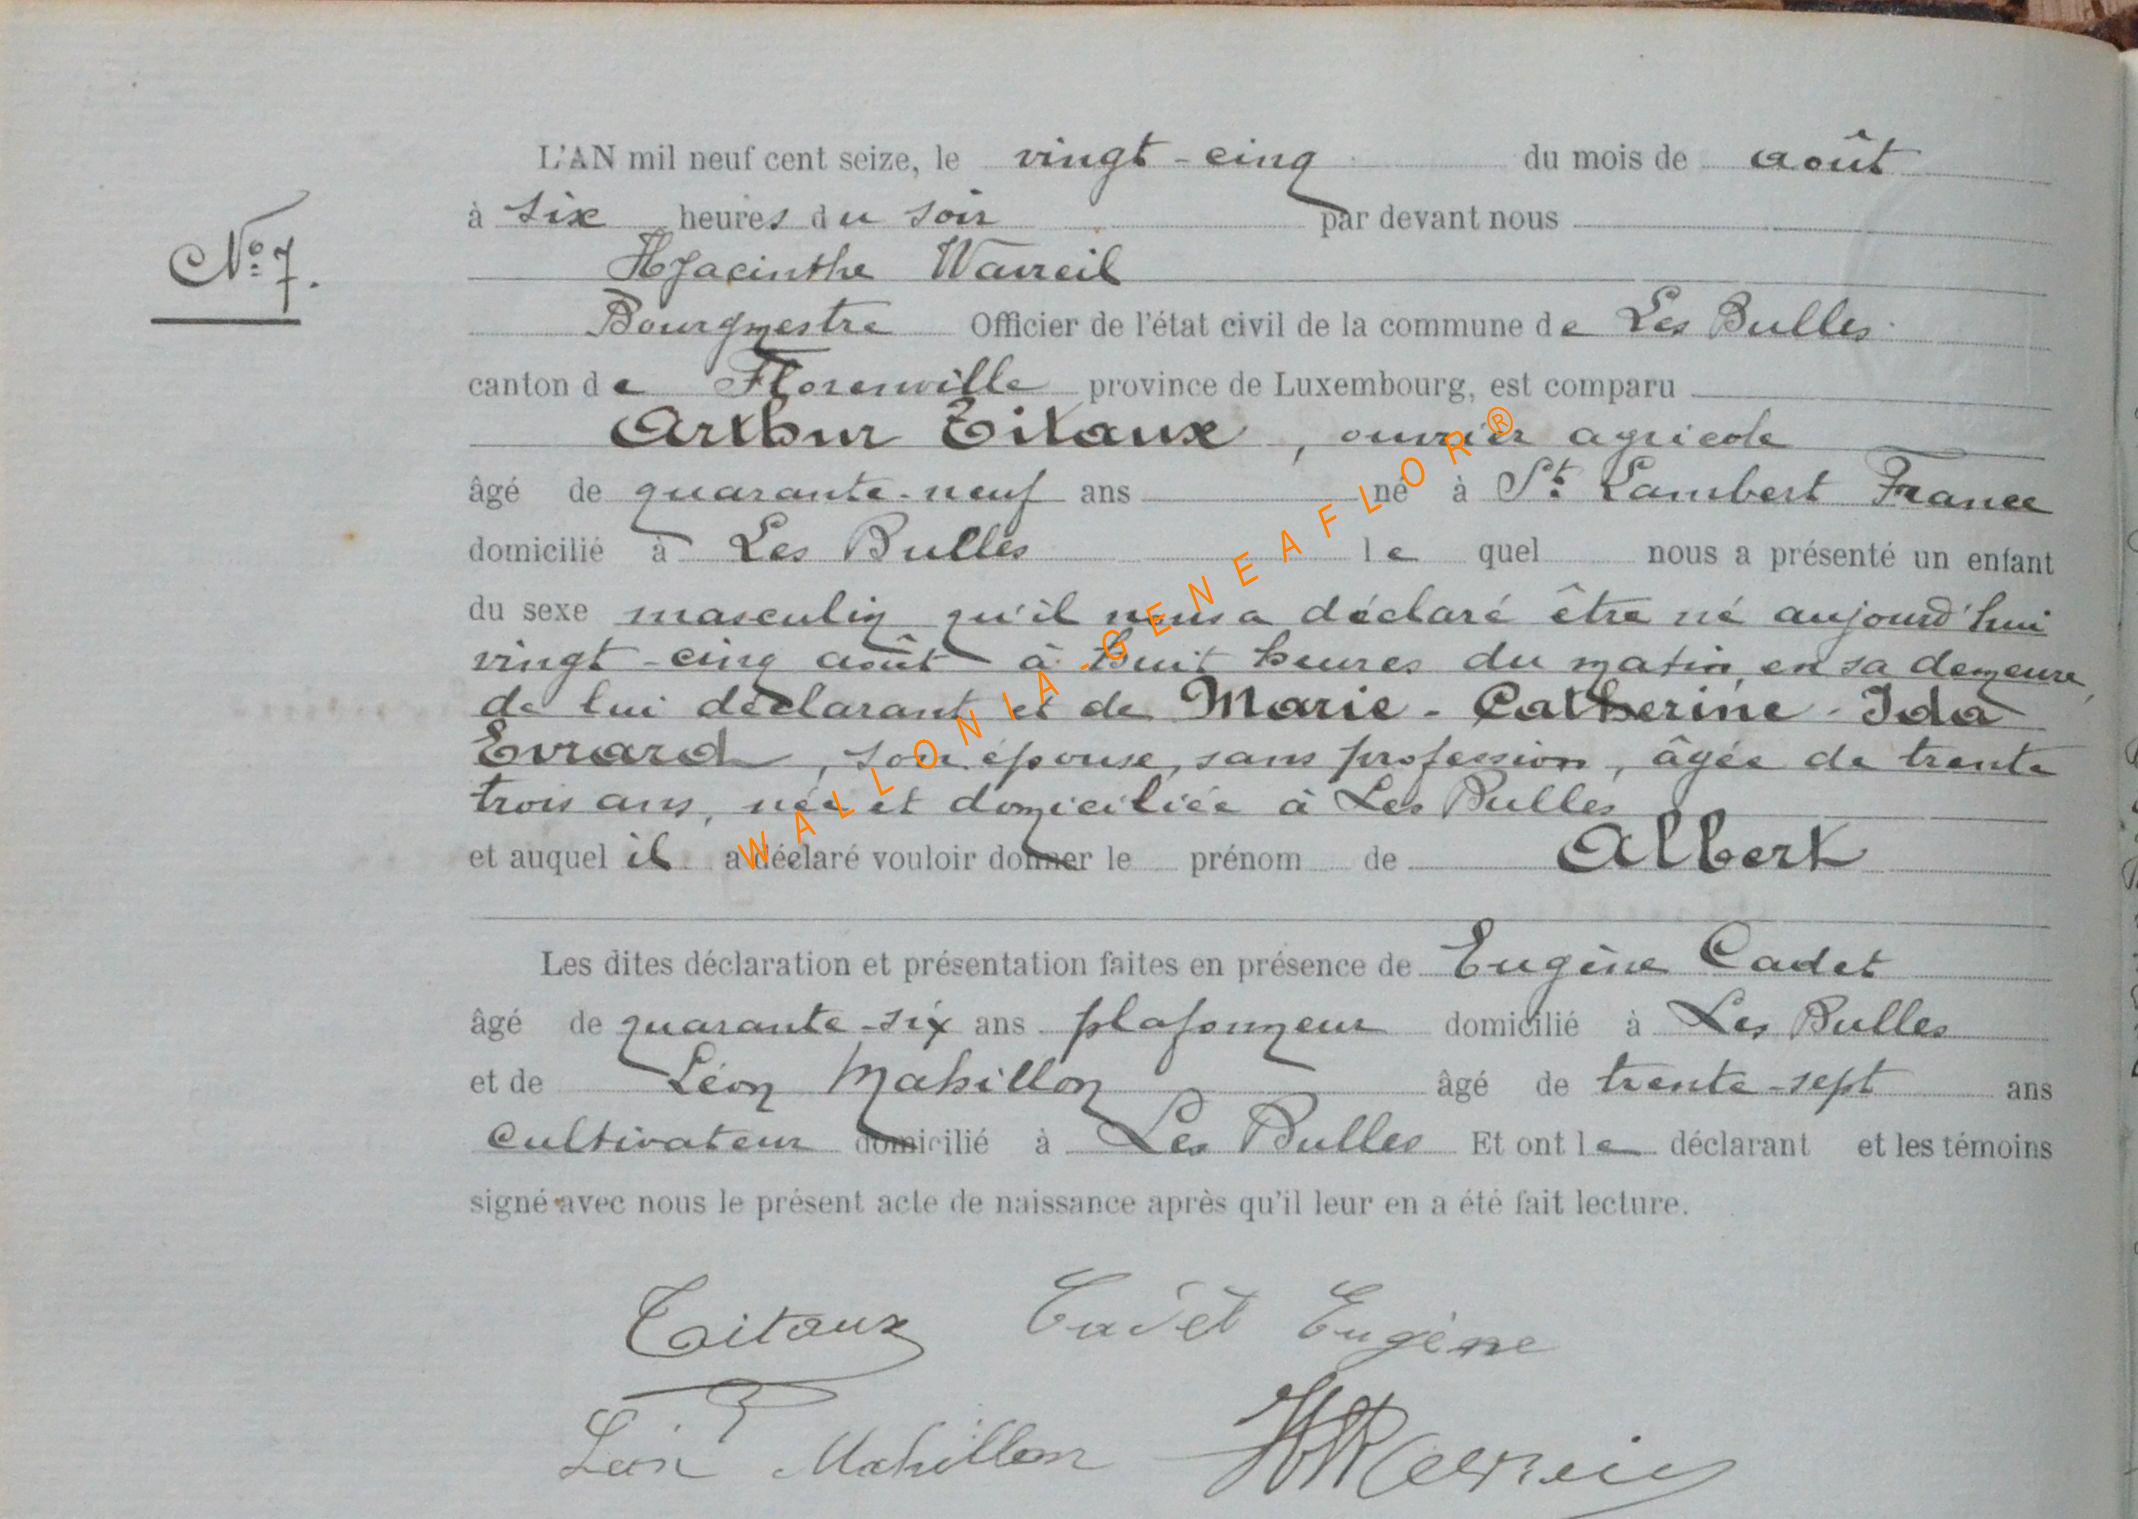 L'AN mil neuf cent seize, le vingt-cinq du mois de août
à six heures du soir par devant nous
N° 7.
Hyacinthe Wavreil
Bourgmestre Officier de l'état civil de la commune de Les Bulles
canton de Florenville province de Luxembourg, est comparu
Arthur Titaux, ouvrier agricole
âgé de quarante-neuf ans né à St. Lambert France
domicilié à Les Bulles le quel nous a présenté un enfant
du sexe masculin qu'il nous a déclaré être né aujourd'hui
vingt-cinq août à huit heures du matin, en sa demeure,
de lui déclarant et de Marie-Catherine-Ida
Evrard, son épouse, sans profession, âgée de trente
trois ans, née et domiciliée à Les Bulles
et auquel il a déclaré vouloir donner le prénom de Albert
Les dites déclaration et présentation faites en présence de Eugène Cadet
âgé de quarante-six ans plafonneur domicilié à Les Bulles
et de Léon Mahillon âgé de trente-sept ans
cultivateur domicilié à Les Bulles Et ont le déclarant et les témoins
signé avec nous le présent acte de naissance après qu'il leur en a été fait lecture.
Titaux Cadet Eugène
Léon Mahillon
WALLONIA.GENEAFLOR®